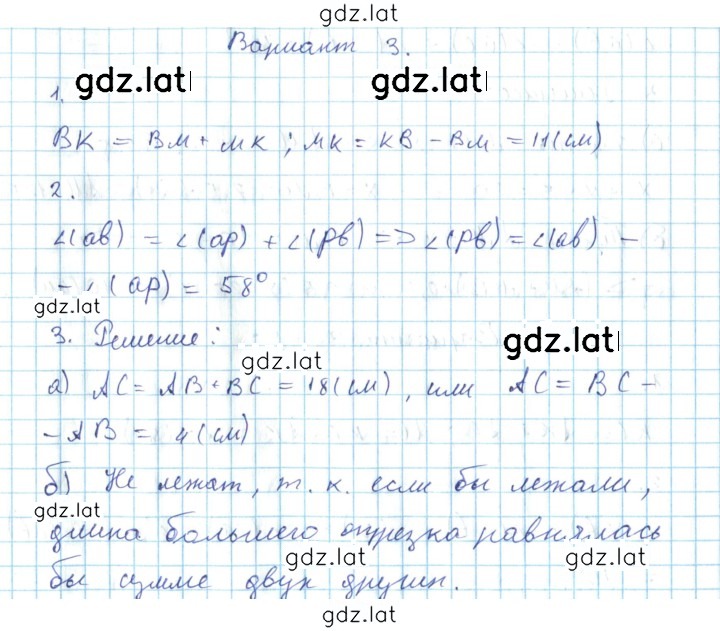 gdz.lat
Вариант 3.
gdz.lat gdz.lat
1.
ВК = ВМ + МК ; МК = КВ - ВМ = 11(см)
2.
∠(ab) = ∠(ap) + ∠(pb) => ∠(pb) = ∠(ab) -
- ∠(ap) = 58°
gdz.lat
3. Решение:
gdz.lat gdz.lat
а) AC = AB + BC = 18(см), или AC = BC -
- AB = 4(см)
б) Не лежат, т. к. если бы лежали,
gdz.lat
длина большего отрезка равнялась
gdz.lat gdz.lat
бы сумме двух других.
gdz.lat